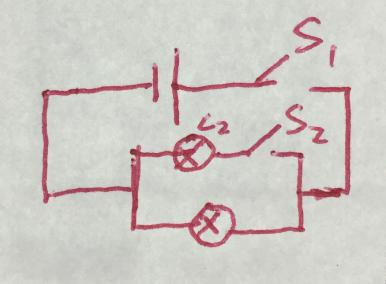 S1
L2 S2